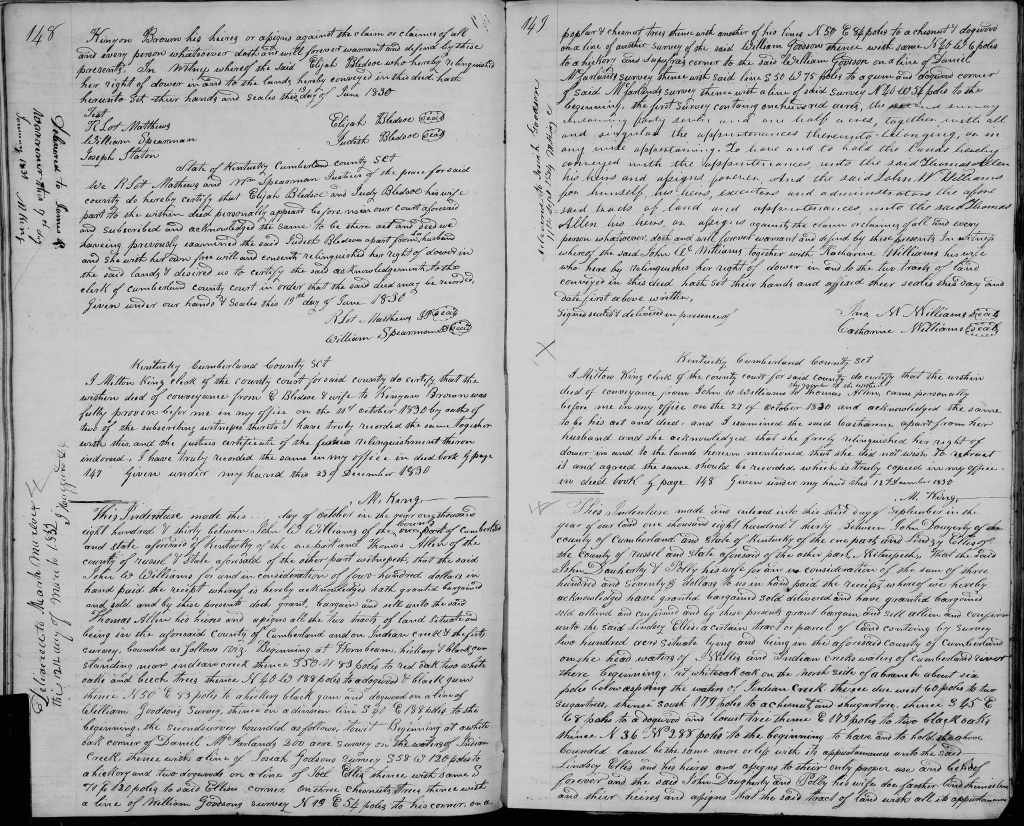 148
Kinyon Brown his heires or assigns against the claim or claimes of all
and every person whatsoever doth and will forever warrant and defend by these
presents. In Witness whereof the said Elijah Bledsoe who hereby relinquished
her right of dower in and to the lands hereby conveyed in this deed hath
hereunto set their hands and seales this 19th day of June 1830
Test
R Lot Matthews
William Spearman
Joseph Staton
Elijah Bledsoe Seal
Judith Bledsoe Seal
State of Kentucky Cumberland county Sct
We R Lot Mathews and Wm Spearman Justices of the peace for said
county do hereby certify that Elijah Bledsoe and Judy Bledsoe his wife
part to the within deed personally appeard before us in our court aforesaid
and subscribed and acknowledged the same to be there act and deed we
haveing previously examined the said Judith Bledsoe apart from husband
and she with her own free will and consent relinquished her right of dower in
the said lands & desired us to certify the said acknowledgement to the
clerk of cumberland county court in order that the said deed may be recorded
Given under our hands & seales this 19th day of June 1830
R Lot Matthews JP Seal
William Spearman Seal
Kentucky Cumberland County Sct
I Milton King clerk of the county court for said county do certify that the
within deed of conveyance from E Bledsoe & wife to Kinyon Brown was
fully proven before me in my office on the 21st October 1830 by oaths of
two of the subscribing witnesses thereto I have truly recorded the same together
with this and the justices certificate of the relinguishment thereon
indorsed. I have truly recorded the same in my office in deed book G page
147 Given under my hand this 23 of December 1830
M. King
This Indenture made this day of October in the year one thousand
eight hundred & thirty between John W Williams of the county of Cumberland
and state aforesaid of Kentucky of the one part and Thomas Allen of the
county of russel & State aforesaid of the other part witnesseth, that the said
John W Williams for and in consideration of four hundred dollars in
hand paid the receipt whereof is hereby acknowledges hath granted bargained
and sold and by these presents doth grant, bargain and sell unto the said
Thomas Allen his heires and assigns all the two tracts of land situate and
being in the aforesaid County of Cumberland and on Indian creek & the first
survey. bounded as follows towit. Beginning at Hornbeam, hickory & black gum
standing near indian creek thence S50 W 83 poles to red oak two white
oaks and beech trees thence N 40 W 188 poles to a dogwood & black gum
thence N 50 E 83 poles to a hickory black gum and dogwood on a line of
William Goodsons Survey, thence on a division line S 40 E 188 poles to the
beginning. the second survey bounded as follows, towit Beginning at a white
oak corner of Daniel McFarlands 200 acre survey on the waters of Indian
Creek thence with a line of Josiah Godsons survey S 58 W 120 poles to
a hickory and two dogwoods on a line of Joel Ellis thence with same
120 poles to said Elliss corner. on three Chesnuts Trees thence with
a line of William Goodsons survey N 19 E 54 poles to his corner. on a
149
poplar & chesnot trees thence with another of his lines N 50 E 34 poles to a chesnot & dogwood
on a line of another survey of the said William Goosons thence with same N 40 W 6 poles
to a hickory and sassafras corner to the said William Godsson on a line of Daniel
McFarlands Survey thence with said line S 50 W 75 poles to a gum and dogwood corner
of said McFarlands survey thence with a line of said Survey N 40 W 54 poles to the
beginning. the first survey containg one hundred acres, the second survey
containing forty seven and one half acres, together with all
and singular the appurtenances thereunto belonging, or in
any wise appertaining. To have and to hold the lands hereby
conveyed with the appurtenances unto the said Thomas Allen
his heirs and assigns forever. And the said John W Williams
for himself his heirs, executors and administrators the afore
said tracts of land and appurtenances unto the said Thomas
Allen his heirs or assigns against the claim or claimes of all and every
person whatsoever doth and will forever warrant and defend by these presents In witness
whereof the said John W Williams together with Katharine Williams his wife
who here by relinguishes her right of dower in and to the two tracts of land
conveyed in this deed hath set their hands and affixed their seales this day and
date first above written.
Signed sealed & delivered in presence of
W Williams Seal
Catharine Williams Seal
Kentucky Cumberland County Sct
I Milton King clerk of the county court for said county do certify that the within
deed of conveyance from John W Williams to Thomas Allen, came personally
before me in my office on the 27 of October 1830 and acknowledged the same
to be his act and deed. and I examined the said Catharine apart from her
husband and she acknowledged that she freely relinguished her right of
dower in and to the lands herein mentioned that she did not wish to retract
it and agreed the same should be recorded which is truly copied in my office
in deed book G page 148 Given under my hand this December 1830
M. King,
This Indenture made and entered into this third day of September in the
year of our land one thousand eight hundred & thirty between John Daugherty of the
county of Cumberland and State of Kentucky of the one part and Lindsy Ellis of
the County of russel and State aforesaid of the other part, Witnesseth, that the said
John Daugherty & Polly his wife for an in consideration of the sum of three
hundred and Seventy dollars to us in hand paid the receipt whereof we hereby
acknowledged have granted bargained sold delivered and have granted bargained
sold aliend and confirmed and by these presents grant bargain and sell allien and confirm
unto the said Lindsey Ellis a certain tract or parcel of land containg by survey
two hundred acres situate lying and being in the aforesaid county of Cumberland
on the head waters of Willis and Indian Creeks waters of Cumberland river
there beginning. at white oak oak on the north side of a branch about six
poles below a spring the waters of Indian Creek thence due west 60 poles to two
sugartrees, thence south 179 poles to a chesnut and shugartree, thence S 45 E
68 poles to a dogwood and locust tree thence E 179 poles to two black oaks
thence N 36 W 288 poles to the beginning to have and to hold the above
bounded land be the same more or less with its appurtenances unto the said
Lindsey Ellis and his heires and assigns to their only proper use and behoof
forever and the said John Daugherty and Polly his wife doe farther bind themselves
and their heires and assigns that the said tract of land with all its appurtanances